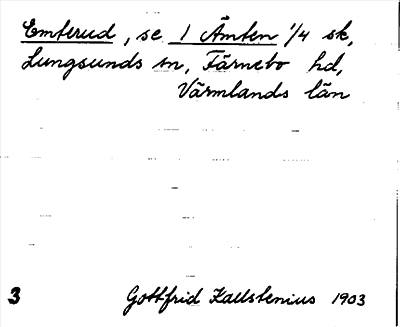 Emterud, se 1 Ämten 1/4 sk,
Lungsunds sn, Färnebo hd,
Värmlands län
3 Gottfrid Kallstenius 1903